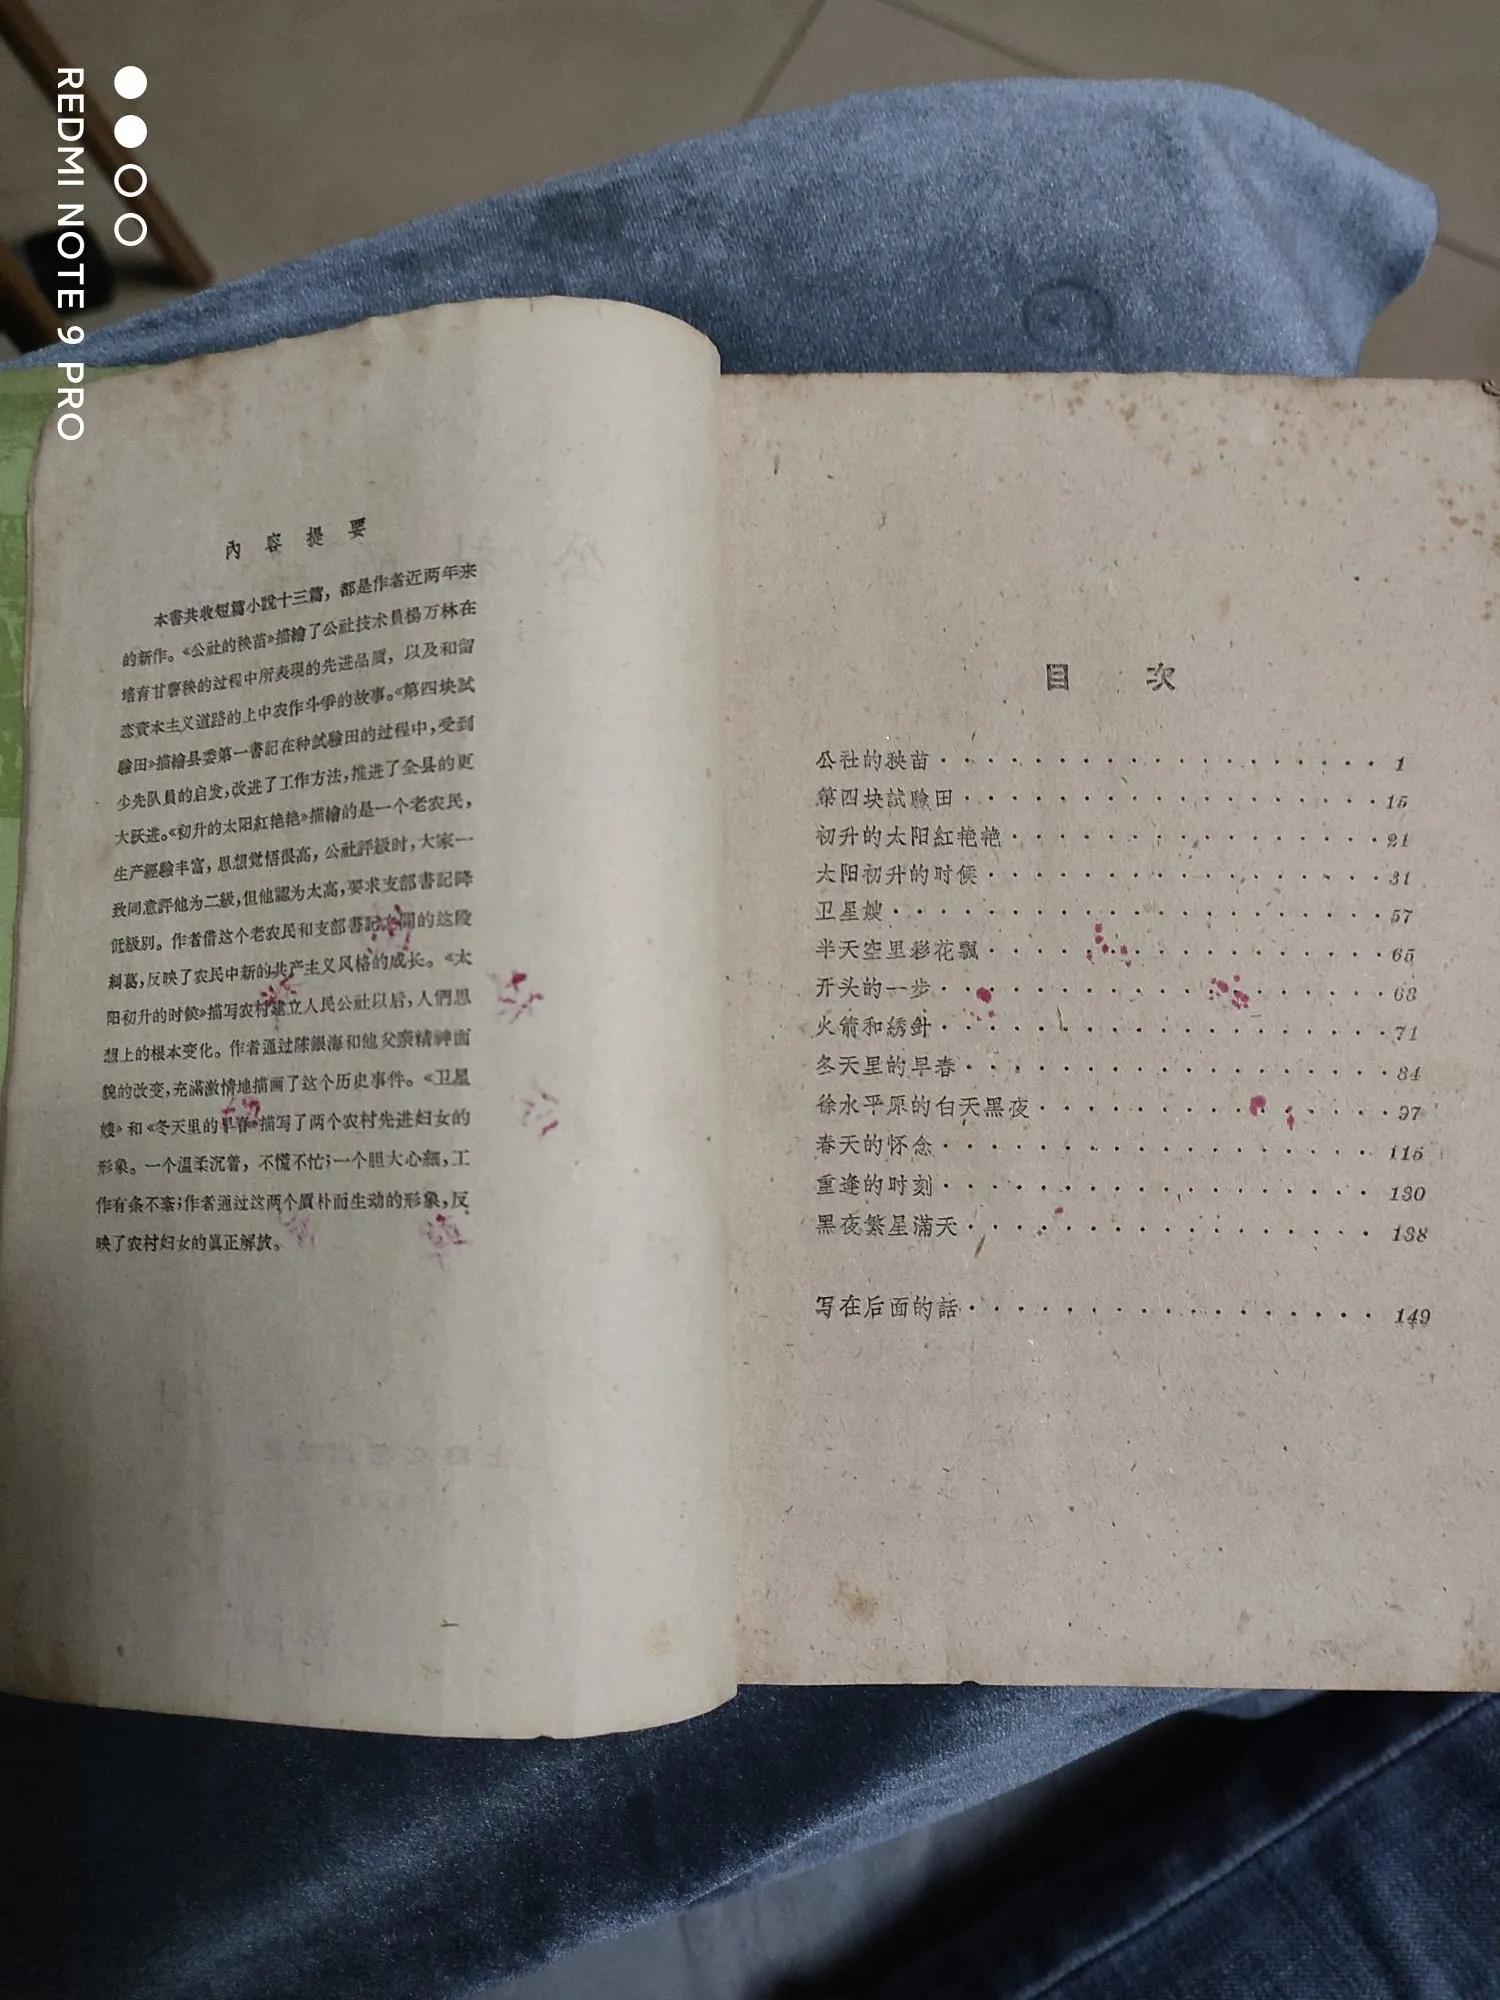 REDMI NOTE 9 PRO
內容提要
本書共收短篇小說十三篇，都是作者近两年来
的新作。《公社的秧苗》描繪了公社技术員楊万林在
培育甘薯秧的过程中所表現的先进品质，以及和留
恋資本主义道路的上中农作斗爭的故事。《第四块試
驗田》描繪县委第一書記在种試驗田的过程中，受到
少先队員的启发，改进了工作方法，推进了全县的更
大跃进。《初升的太阳紅艳艳》描繪的是一个老农民，
生产經驗丰富，思想觉悟很高，公社評級时，大家一
致同意評他为二級，但他認为太高，要求支部書記降
低級別。作者借这个老农民和支部書記 間的这段
糾葛，反映了农民中新的共产主义风格的成长。《太
阳初升的时候》描写农村建立人民公社以后，人們思
想上的根本变化。作者通过陈銀海和他父亲精神面
貌的改变，充滿激情地描画了这个历史事件。《卫星
嫂》和《冬天里的早春》描写了两个农村先进妇女的
形象。一个温柔沉着，不慌不忙；一个胆大心細，工
作有条不紊；作者通过这两个质朴而生动的形象，反
映了农村妇女的眞正解放。
目次
公社的秧苗 · · · · · · · · · · · · · · · · · · · 1
第四块試驗田 · · · · · · · · · · · · · · · · · · 15
初升的太阳紅艳艳 · · · · · · · · · · · · · · · · 21
太阳初升的时候 · · · · · · · · · · · · · · · · · 31
卫星嫂 · · · · · · · · · · · · · · · · · · · · · 57
半天空里彩花飄 · · · · · · · · · · · · · · · · · 65
开头的一步 · · · · · · · · · · · · · · · · · · · 68
火箭和绣針 · · · · · · · · · · · · · · · · · · · 71
冬天里的早春 · · · · · · · · · · · · · · · · · · 84
徐水平原的白天黑夜 · · · · · · · · · · · · · · · 97
春天的怀念 · · · · · · · · · · · · · · · · · · · 115
重逢的时刻 · · · · · · · · · · · · · · · · · · · 130
黑夜繁星滿天 · · · · · · · · · · · · · · · · · · 138
写在后面的話 · · · · · · · · · · · · · · · · · · 149